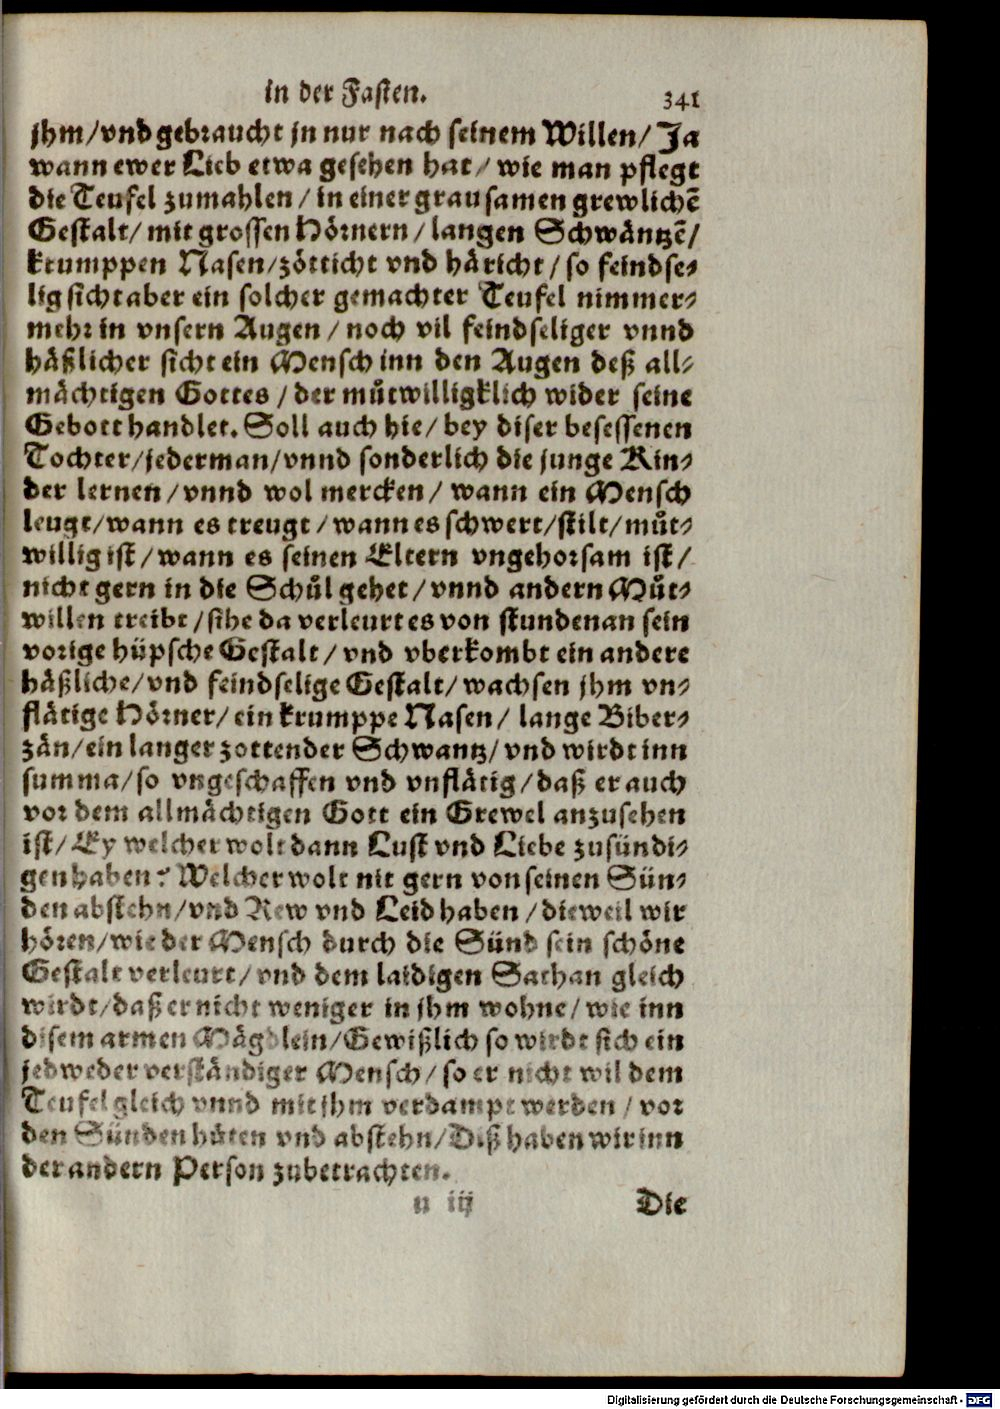 in der Fasten. 341
jhm/vnd gebraucht jn nur nach seinem Willen/ Ja
wann ewer Lieb etwa gesehen hat/ wie man pflegt
die Teufel zumahlen/ in einer grausamen grewlichē
Gestalt/ mit grossen Hörnern/ langen Schwäntzē/
krumppen Nasen/zötticht vnd häricht/ so feindse-
lig sicht aber ein solcher gemachter Teufel nimmer-
mehr in vnsern Augen/ noch vil feindseliger vnnd
häßlicher sicht ein Mensch inn den Augen deß all-
mächtigen Gottes/ der můtwilligklich wider seine
Gebott handlet. Soll auch hie/ bey diser besessenen
Tochter/jederman/vnnd sonderlich die junge Kin-
der lernen/ vnnd wol mercken/ wann ein Mensch
leugt/wann es treugt/wann es schwert/stilt/můt-
willig ist/ wann es seinen Eltern vngehorsam ist/
nicht gern in die Schůl gehet/ vnnd andern Můt-
willen treibt/sihe da verleurt es von stundenan sein
vorige hüpsche Gestalt/ vnd vberkombt ein andere
häßliche/vnd feindselige Gestalt/ wachsen jhm vn-
flätige Hörner/ein krumppe Nasen/ lange Biber-
zän/ein langer zottender Schwantz/ vnd wirdt inn
summa/so vngeschaffen vnd vnflätig/daß er auch
vor dem allmächtigen Gott ein Grewel anzusehen
ist/ Ey welcher wolt dann Lust vnd Liebe zusündi-
gen haben? Welcher wolt nit gern von seinen Sün-
den abstehn/vnd Rew vnd Leid haben/dieweil wir
hören/wie der Mensch durch die Sünd sein schöne
Gestalt verleurt/ vnd dem laidigen Sathan gleich
wirdt/daß er nicht weniger in jhm wohne/ wie inn
disem armen Mägdlein/Gewißlich so wirdt sich ein
jedweder verständiger Mensch/ so er nicht wil dem
Teufel gleich vnnd mit jhm verdampt werden/ vor
den Sünden hüten vnd abstehn/Diß haben wir inn
der andern Person zubetrachten.
u iij Die
Digitalisierung gefördert durch die Deutsche Forschungsgemeinschaft - DFG